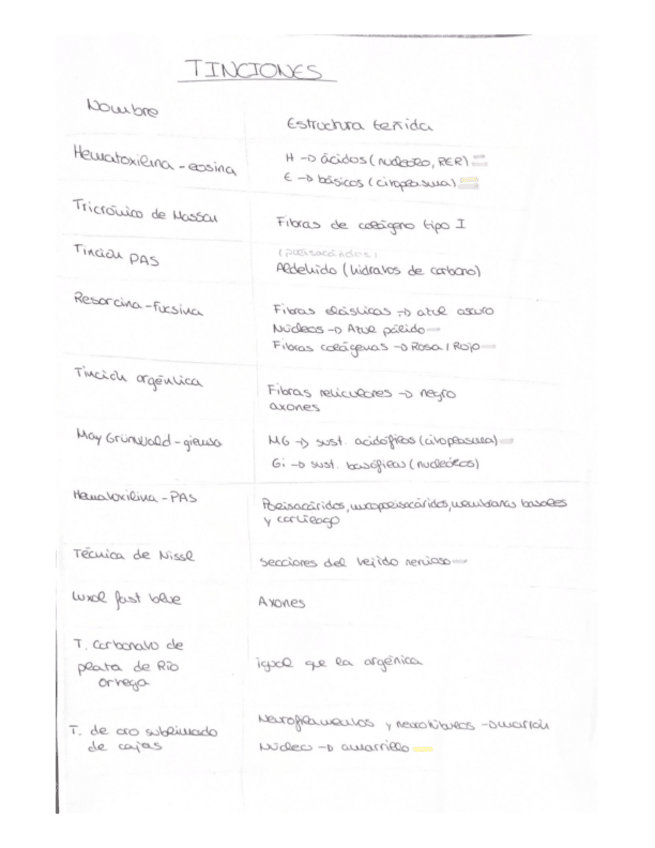 TINCIONES
Nombre
Estructura teñida
Hematoxilina - eosina
H → ácidos (nucleolo, RER)
E → básicos (citoplasma)
Tricrómico de Massau
Fibras de colágeno tipo I
Tinción PAS
(polisacáridos)
Aldehido (hidratos de carbono)
Resorcina - Fucsina
Fibras elásticas → azul oscuro
Núcleos → Azul pálido
Fibras colágenas → Rosa / Rojo
Tinción argéntica
Fibras reticulares → negro
axones
May Grünwald - giemsa
MG → sust. acidófilas (citoplasma)
Gi → sust. basófilas
Hematoxilina - PAS
Polisacáridos, mucopolisacáridos, membranas basales
y cartílago
Técnica de Nissl
secciones del tejido nervioso
Luxol fast blue
Axones
T. Carbonato de
plata de Río
Ortega
igual que la argénica
T. de oro sublimado
de cajas
Neurofilamentos y neurotúbulos → marrón
Núcleo → amarrillo